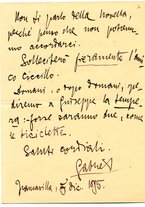 Non ti parlo della novella,
perché penso che non potremmo
accordarci.
Solleciterò fieramente l'amico
ciccillo.
Domani, o dopo domani, spediremo
a Giuseppe la tempera
: forse saranno due, come
le biciclette.
Saluti cordiali.
Gabriel
Francavilla: dic. 1895.